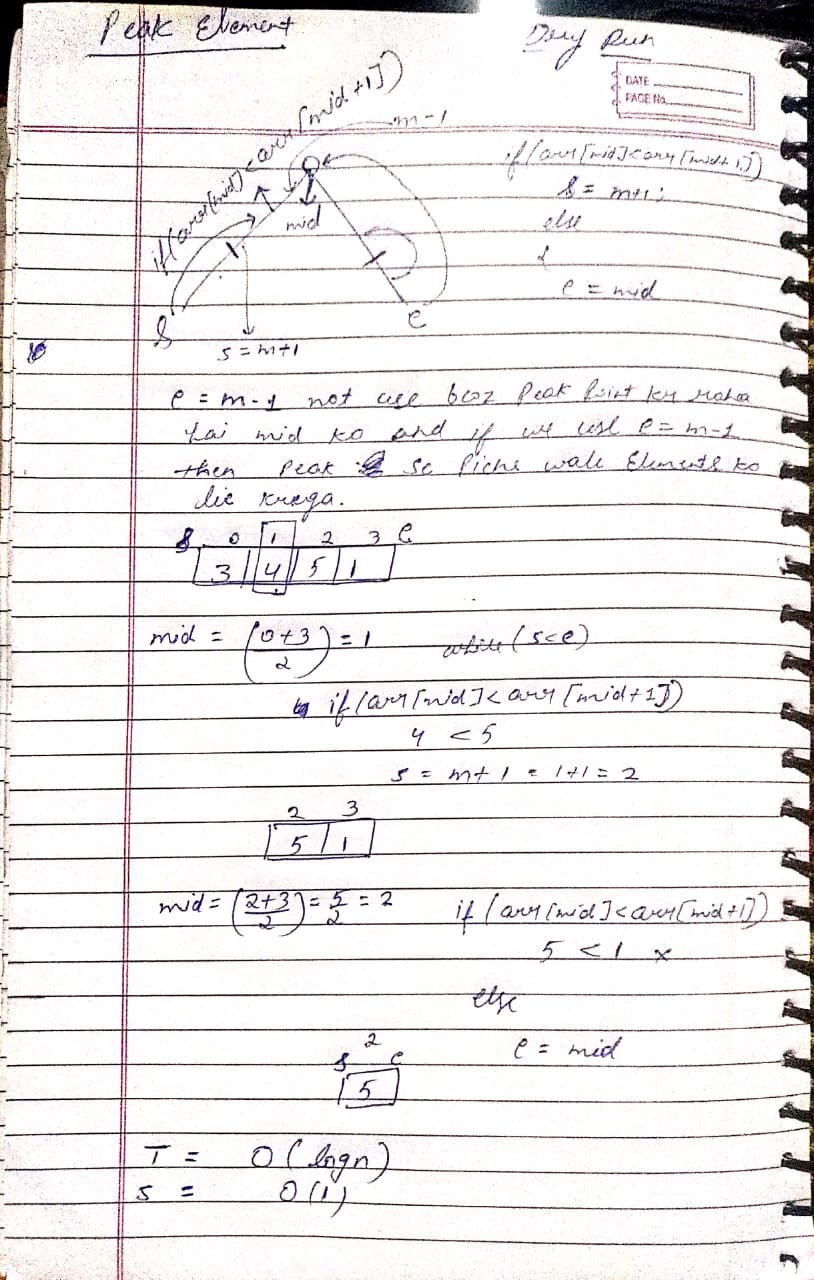 Peak Element
Dry Run
DATE
PAGE No.
if(arr[mid]<arr[mid+1])
m-1
mid
S
e
s = m+1
if(arr[mid]<arr[mid+1])
s = m+1;
else
{
e = mid
e = m-1 not use bcoz Peak Point kr raha
hai mid ko and if we use e = m-1
then Peak se Piche wale Elements ko
lie krega.
s 0 1 2 3 e
3 4 5 1
mid = (0+3/2) = 1 while (s<e)
if (arr[mid]<arr[mid+1])
4 < 5
s = m+1 = 1+1 = 2
2 3
5 1
mid = (2+3/2) = 5/2 = 2 if (arr[mid]<arr[mid+1])
5 < 1 x
else
2
s e
e = mid
5
T = O(logn)
S = O(1)